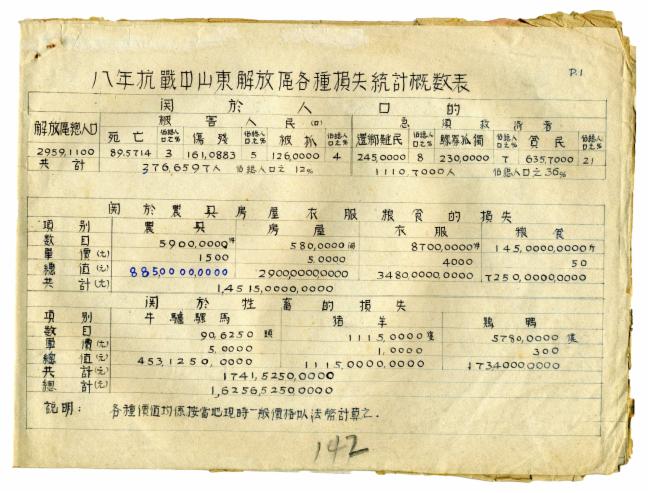 P.1
八年抗戰中山東解放區各種損失統計概數表
関於人口的
解放區總人口 被害人民(口) 急須救濟者
死亡 佔總人口之% 傷殘 佔總人口之% 被抓 佔總人口之% 還鄉難民 佔總人口之% 鰥寡孤獨 佔總人口之% 貧民 佔總人口之%
2959,1100 89,5714 3 161,0883 5 126,0000 4 245,0000 8 230,0000 7 635,7000 21
共計 376,6597人 佔總人口之12% 1110,7000人 佔總人口之36%
関於農具房屋衣服粮食的損失
項別 農具 房屋 衣服 粮食
數目 5900,0000件 580,0000間 8700,0000件 145,0000,0000斤
單價(元) 1500 5,0000 4000 50
總值(元) 885,0000,0000 2900,0000,0000 3480,0000,0000 7250,0000,0000
共計(元) 1,4515,0000,0000
関於牲畜的損失
項別 牛驢騾馬 猪羊 鷄鴨
數目 90,6250頭 1115,0000隻 5780,0000隻
單價(元) 5,0000 1,0000 300
總值(元) 453,1250,0000 1115,0000,0000 173,4000,0000
共計(元) 1741,5250,0000
總計(元) 1,6256,5250,0000
說明: 各種價值均係按當地現時一般價格以法幣計算之.
142